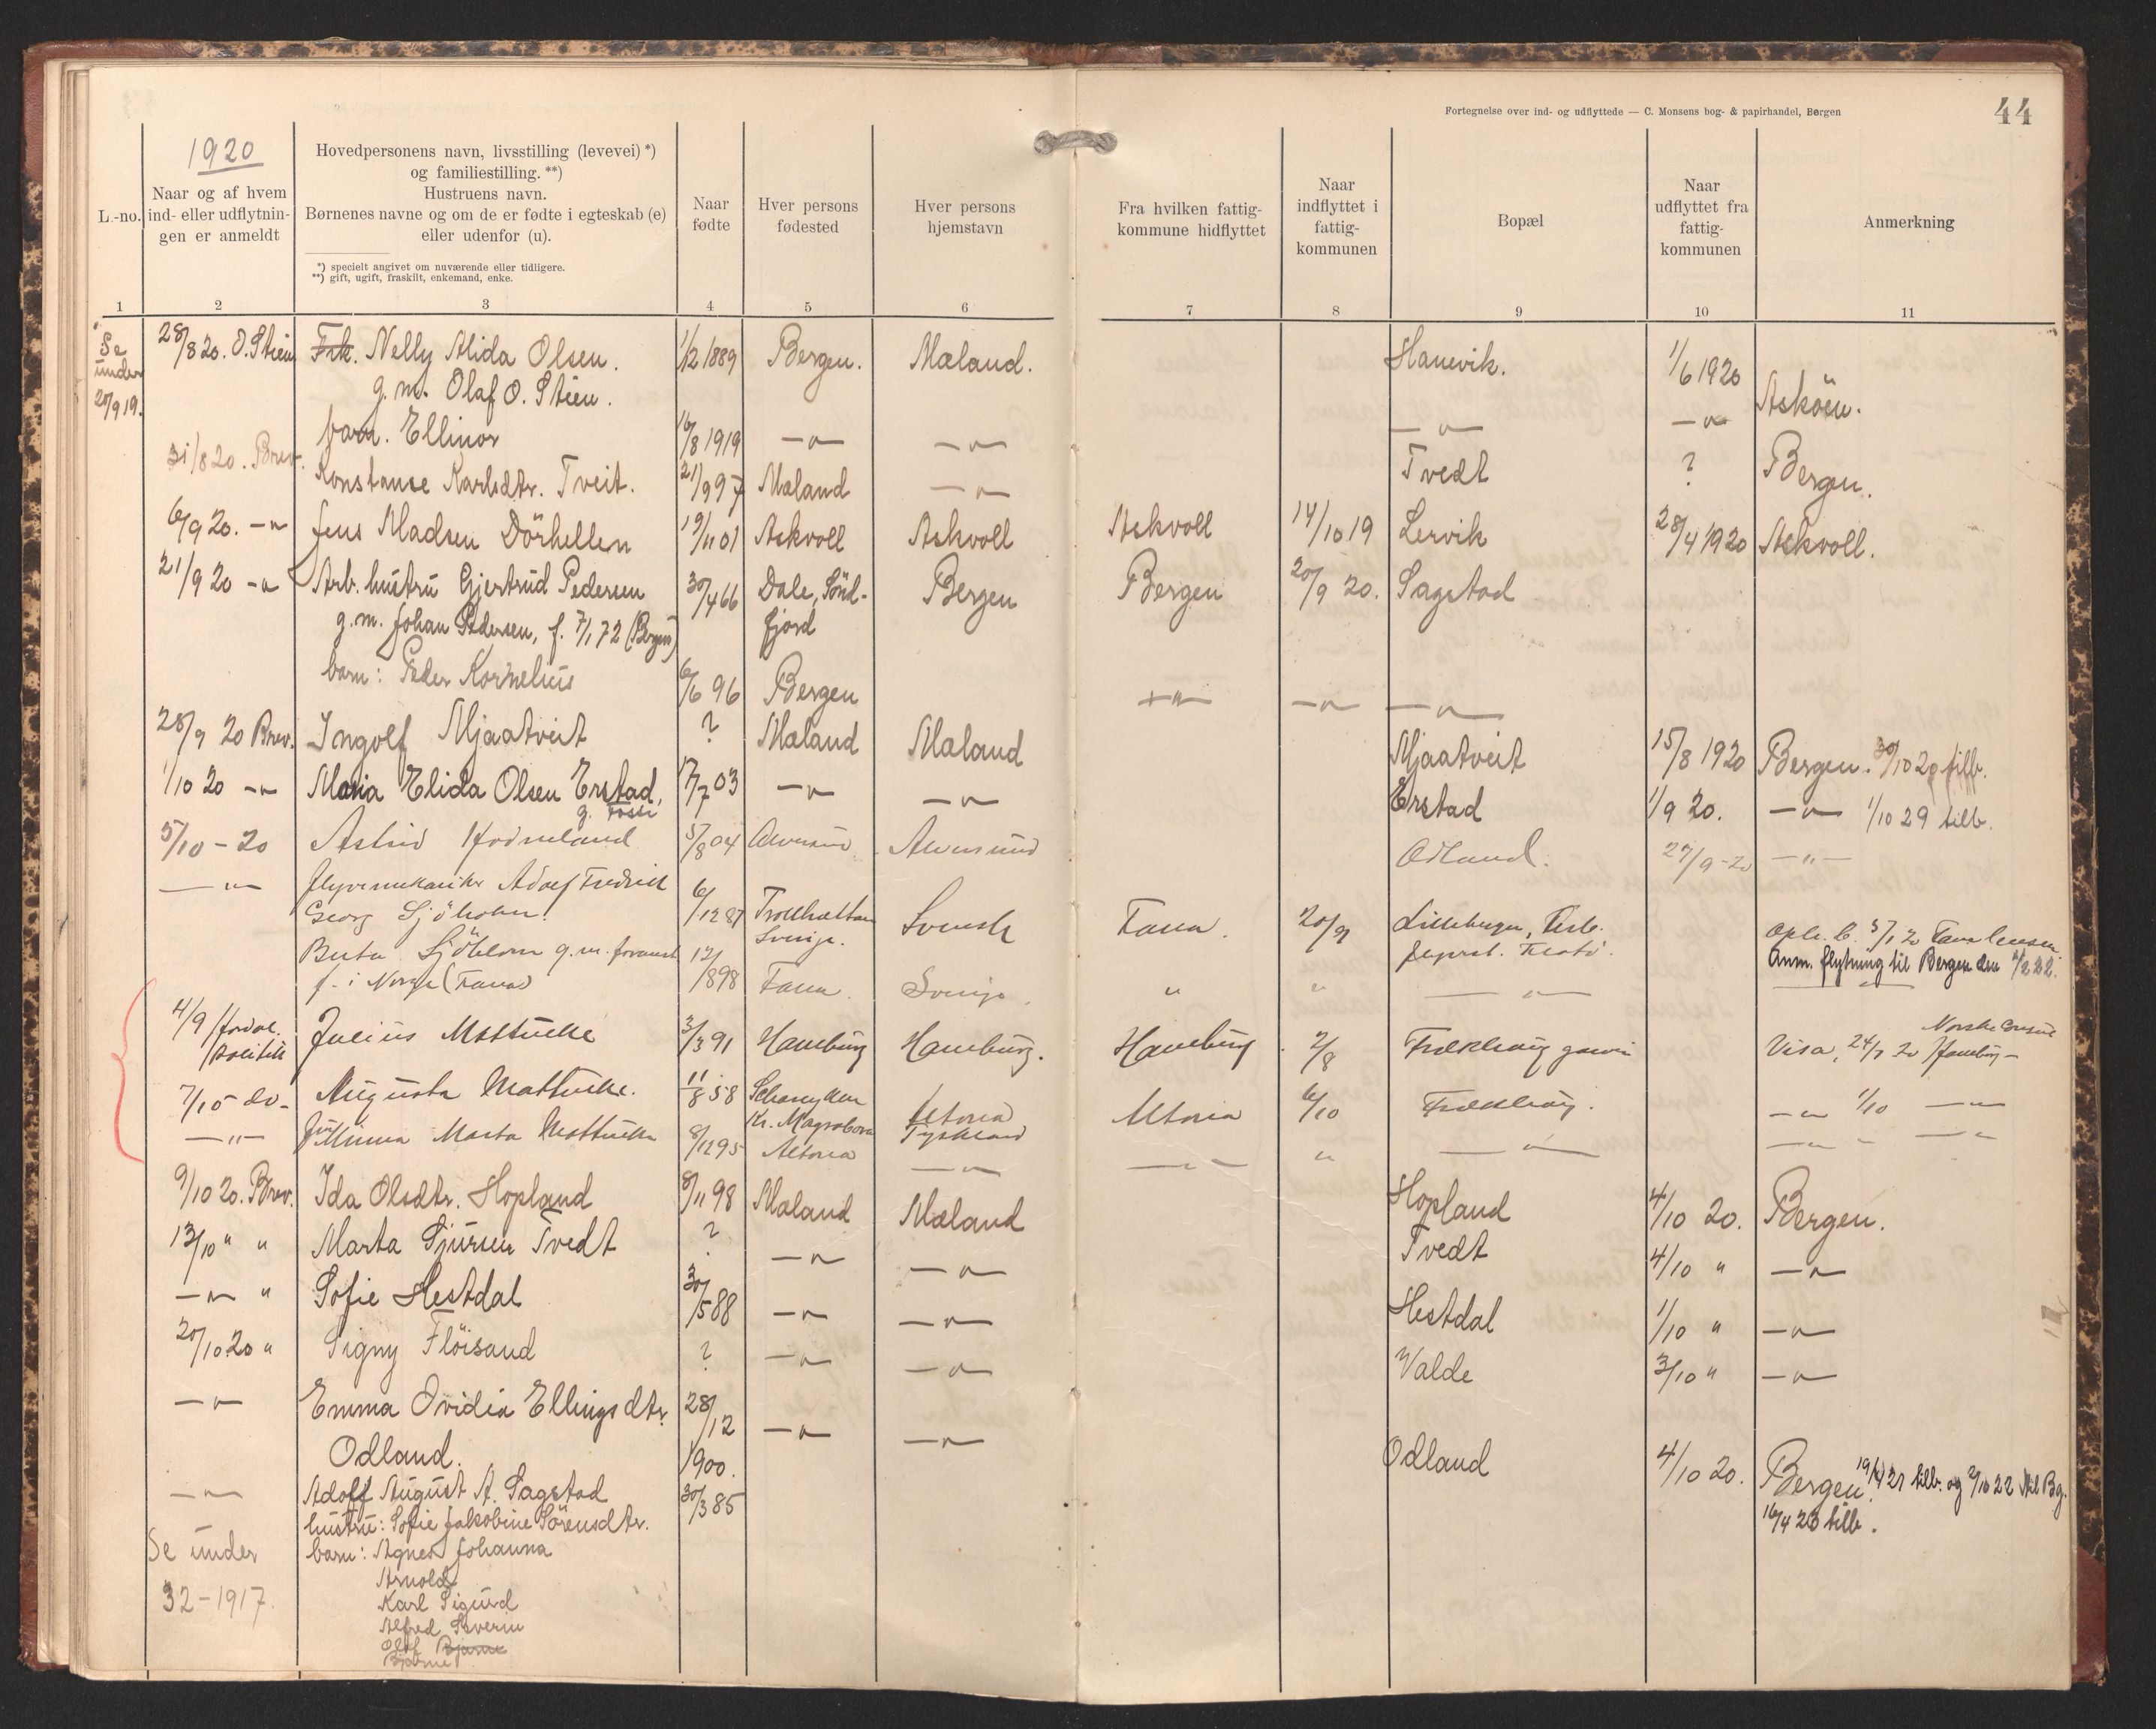 Fortegnelse over ind- og udflyttede — C. Monsens bog- & papirhandel, Bergen
44
1920
L.-no.
Naar og af hvem
ind- eller udflytnin-
gen er anmeldt
Hovedpersonens navn, livsstilling (levevei) *)
og familiestilling. **)
Hustruens navn.
Børnenes navne og om de er fødte i egteskab (e)
eller udenfor (u).
*) specielt angivet om nuværende eller tidligere.
**) gift, ugift, fraskilt, enkemand, enke.
Naar
fødte
Hver persons
fødested
Hver persons
hjemstavn
Fra hvilken fattig-
kommune hidflyttet
Naar
indflyttet i
fattig-
kommunen
Bopæl
Naar
udflyttet fra
fattig-
kommunen
Anmerkning
1 2 3 4 5 6 7 8 9 10 11
Se under 27/9 19. 28/8 20. O. Stien Frk. Nelly Alida Olsen. 1/12 1889 Bergen. Mæland. Hanevik. 1/6 1920 Askøen.
g.m. Olaf O. Stien.
barn. Ellinor 16/8 1919 —"— —"— —"— —"—
31/8 20. Brev. Konstanse Karlsdtr. Tveit. 21/9 97 Mæland —"— Tvedt ? Bergen.
6/9 20. —"— Jens Madsen Dörhellen 19/11 01 Askvoll Askvoll Askvoll 14/10 19 Lervik 28/4 1920 Askvoll.
21/9 20 —"— Arb. hustru Gjertrud Pedersen 30/4 66 Dale, Sönd- Bergen Bergen 20/9 20. Sagstad
g.m. Johan Pedersen, f. 7/1 72 (Bergen) fjord
barn: Peder Kornelius 6/6 96 Bergen —"— —"— —"—
28/9 20 Brev. Ingolf Mjaatveit ? Mæland Mæland Mjaatveit 15/8 1920 Bergen. 30/10 20 tilb.
1/10 20 —"— Maria Elida Olsen Erstad, 17/7 03 —"— —"— Erstad 1/9 20. —"— 1/10 29 tilb.
g. Fosse
5/10 - 20 Astrid Hodneland 5/8 04 Alversund Alversund Odland. 27/9-20 —"—
—"— flyvemekaniker Adolf Fredrik
Georg Sjöholm. 6/12 87 Trollhættan Svensk Fana. 20/9
Sverige.
g.m. forannt. 12/8 98 Fana Sverige. " " —"— Anm. flytning til Bergen den
f. i Norge (Fana)
4/9 Julius Mattucke 3/3 91 Hamburg Hamburg. Hamburg 2/8 Visa, 24/7 20 Hamburg —
7/10 do— Augusta Mattucke. 11/8 58 Altona Altona 6/10 —"— 1/10 —"—
—"— Minna Marta Mattucke 8/12 95 Altona Tyskland —"— " —"— —"— —"—
9/10 20. Brev. Ida Olsdtr. Hopland 8/11 98 Mæland Mæland Hopland 4/10 20. Bergen.
13/10 " " Marta Sjursen Tvedt ? —"— —"— Tvedt 4/10 " —"—
—"— " Sofie Hestdal 30/5 88 —"— —"— Hestdal 1/10 " —"—
20/10 20 " Signy Flöisand ? —"— —"— Valde 3/10 " —"—
—"— Emma Ovidia Ellingsdtr. 28/12 —"— —"—
Odland. 1900. Odland 4/10 20. Bergen. tilb. og 2/10 22 til Bg.
16/4 23 tilb.
—"— Adolf August A. Sagstad 30/3 85
hustru: Sofie Jakobine Sörensdtr.
Se under barn: Agnes Johanna
Arnold
32-1917. Karl Sigurd
Alfred Severin
Olaf Bjarne
Bjarne